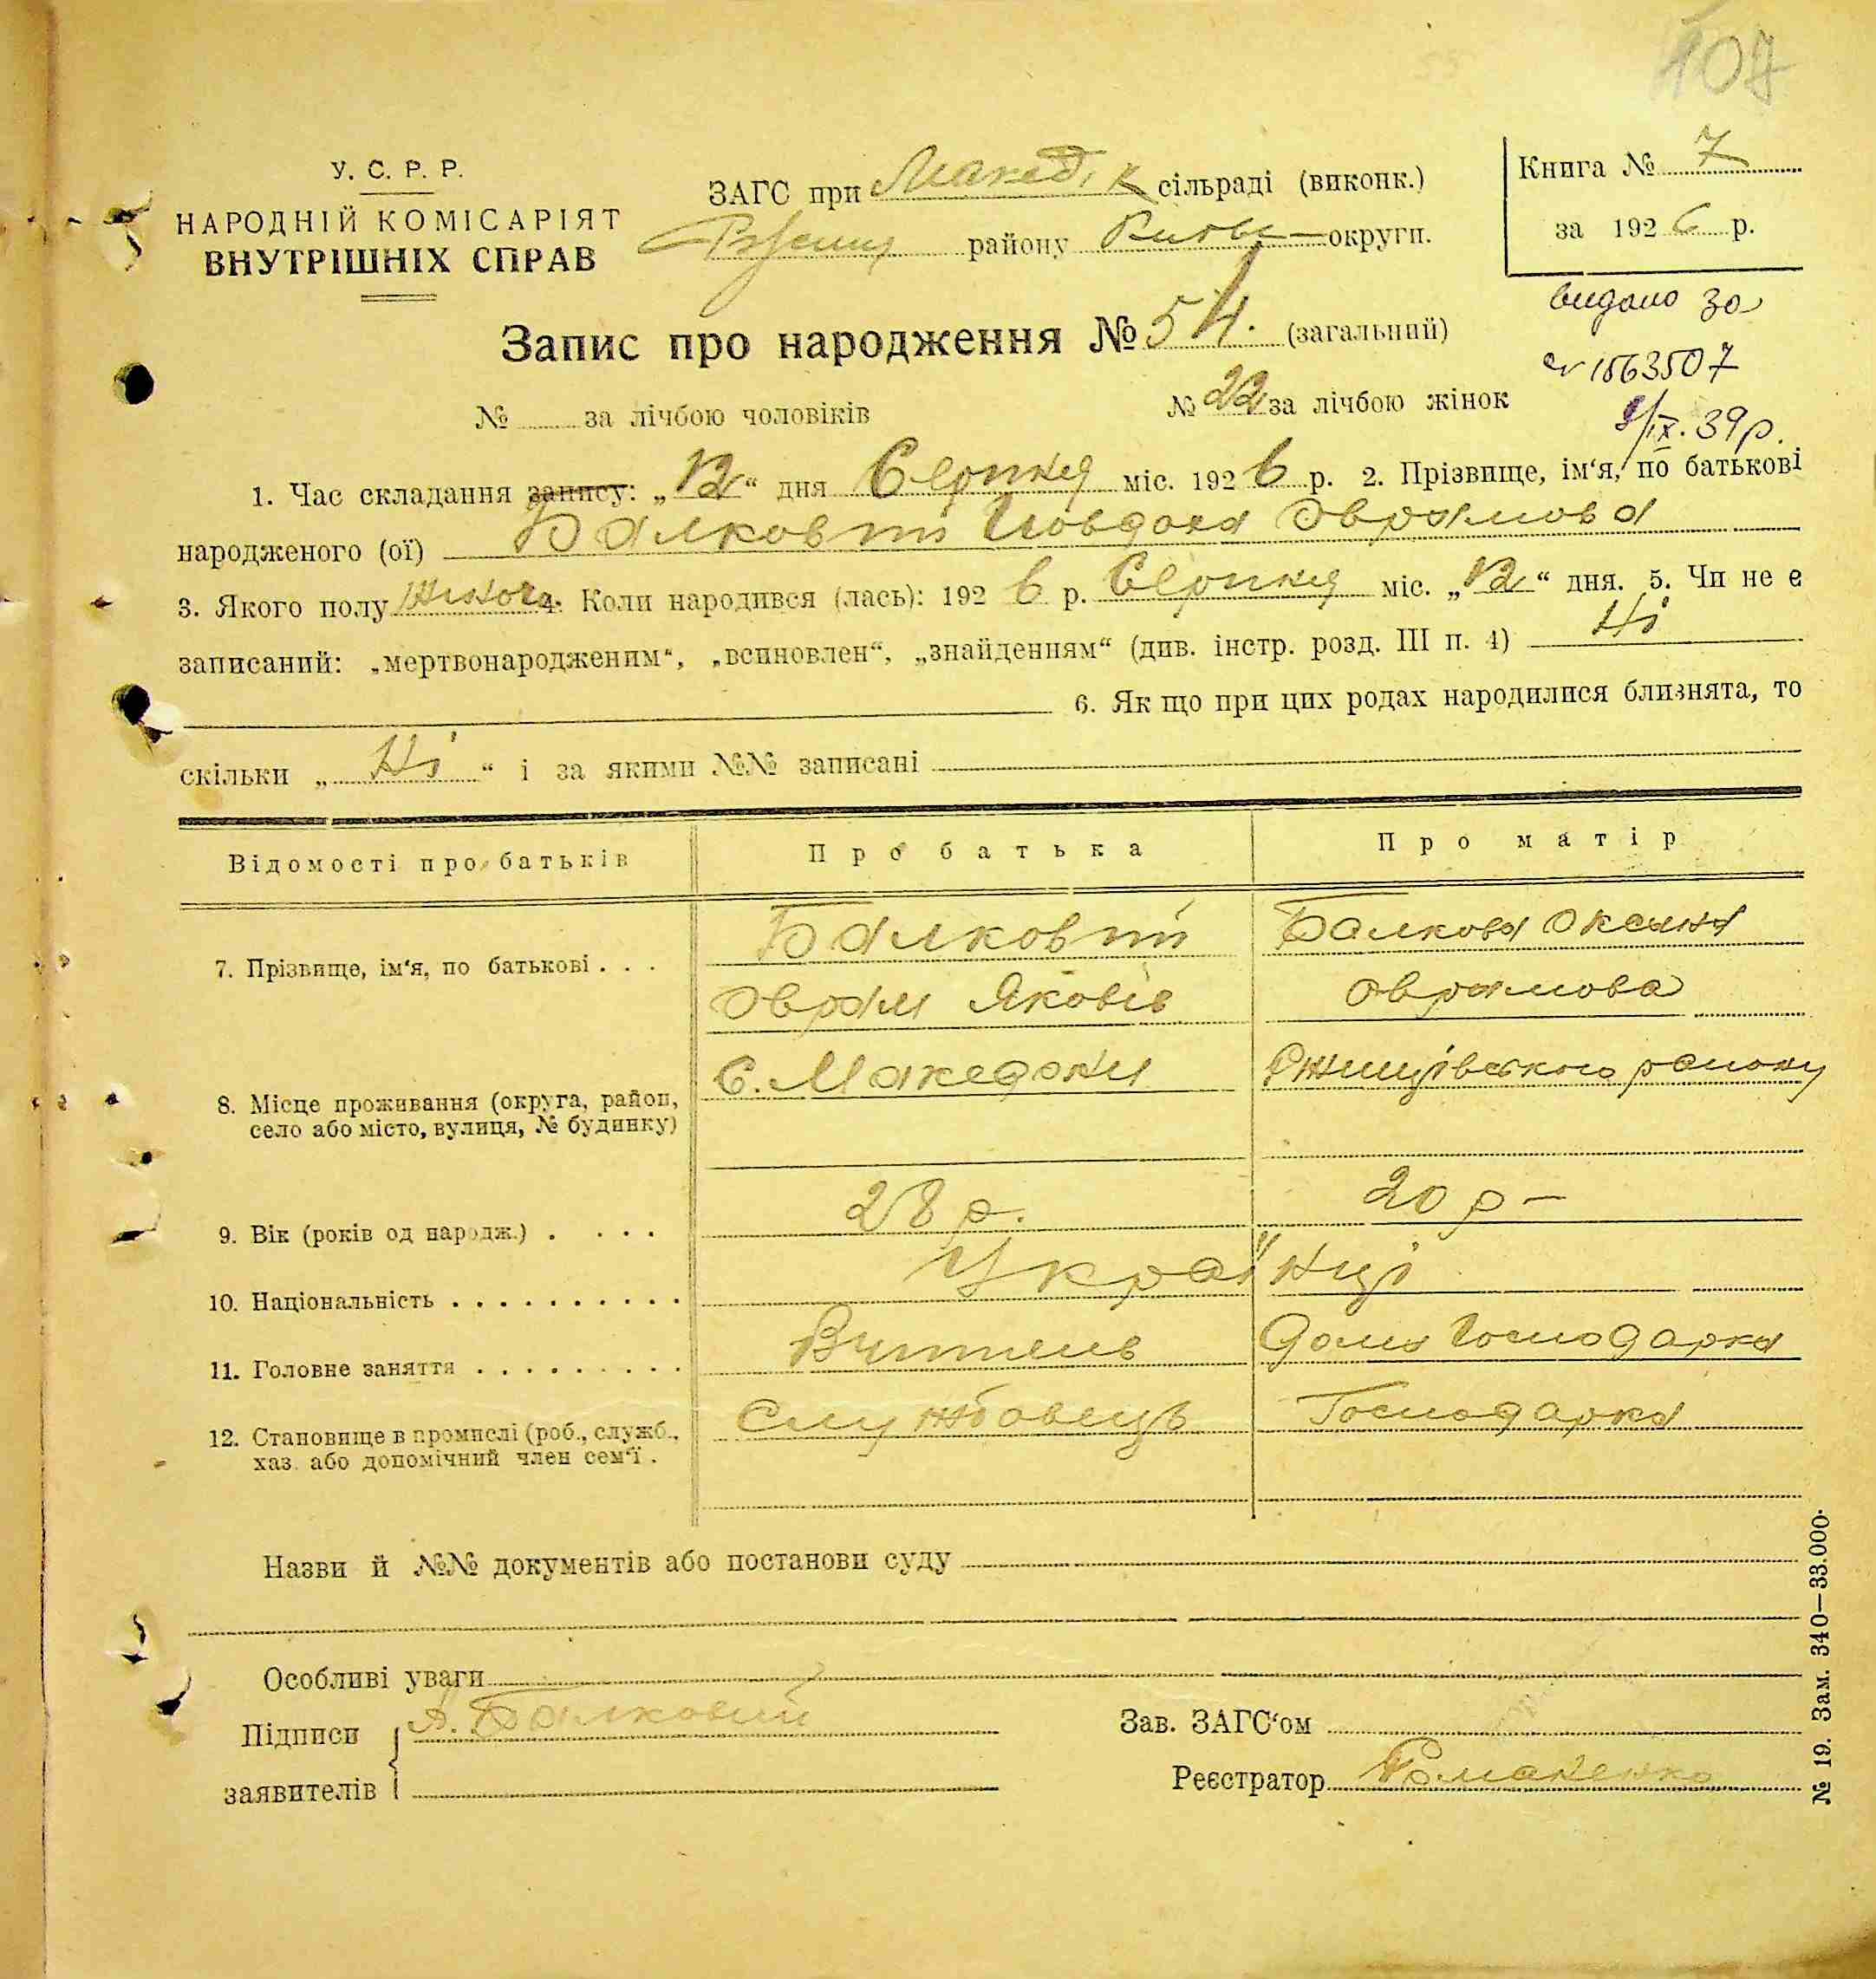 107
У. С. Р. Р.
НАРОДНІЙ КОМІСАРІЯТ
ВНУТРІШНІХ СПРАВ
ЗАГС при Макед. к сільраді (виконк.)
району Київс округи.
Книга № 7
за 1926 р.
видано за
№ 1563507
9/IX. 39 р.
Запис про народження № 54. (загальний)
№ за лічбою чоловіків № 22 за лічбою жінок
1. Час складання запису: „12“ дня Серпня міс. 1926 р. 2. Прізвище, ім‘я, по батькові
народженого (ої) Балковий Оврамова
3. Якого полу Жіноча 4. Коли народився (лась): 1926 р. Серпня міс. „12“ дня. 5. Чи не є
записаний: „мертвонародженим“, „всиновлен“, „знайденням“ (див. інстр. розд. III п. 4) Ні
6. Як що при цих родах народилися близнята, то
скільки „ Ні “ і за якими №№ записані
Відомості про батьків Про батька Про матір
7. Прізвище, ім‘я, по батькові . . . Балковий Балкова Оксана
Оврам Яковів Оврамова
8. Місце проживання (округа, район, село або місто, вулиця, № будинку) С. Македони Ржищівського району
9. Вік (років од народж.) . . . . 28 р. 20 р –
10. Національність . . . . . . . . . . Українці
11. Головне заняття . . . . . . . . . Вчитель Домогосподарка
12. Становище в промислі (роб., служб., хаз. або допомічний член сем‘ї . Службовець Господарка
Назви й №№ документів або постанови суду
Особливі уваги
Підписи заявителів А. Балковий
Зав. ЗАГС‘ом
Реєстратор Романенко
№ 19. Зам. 340—33.000.